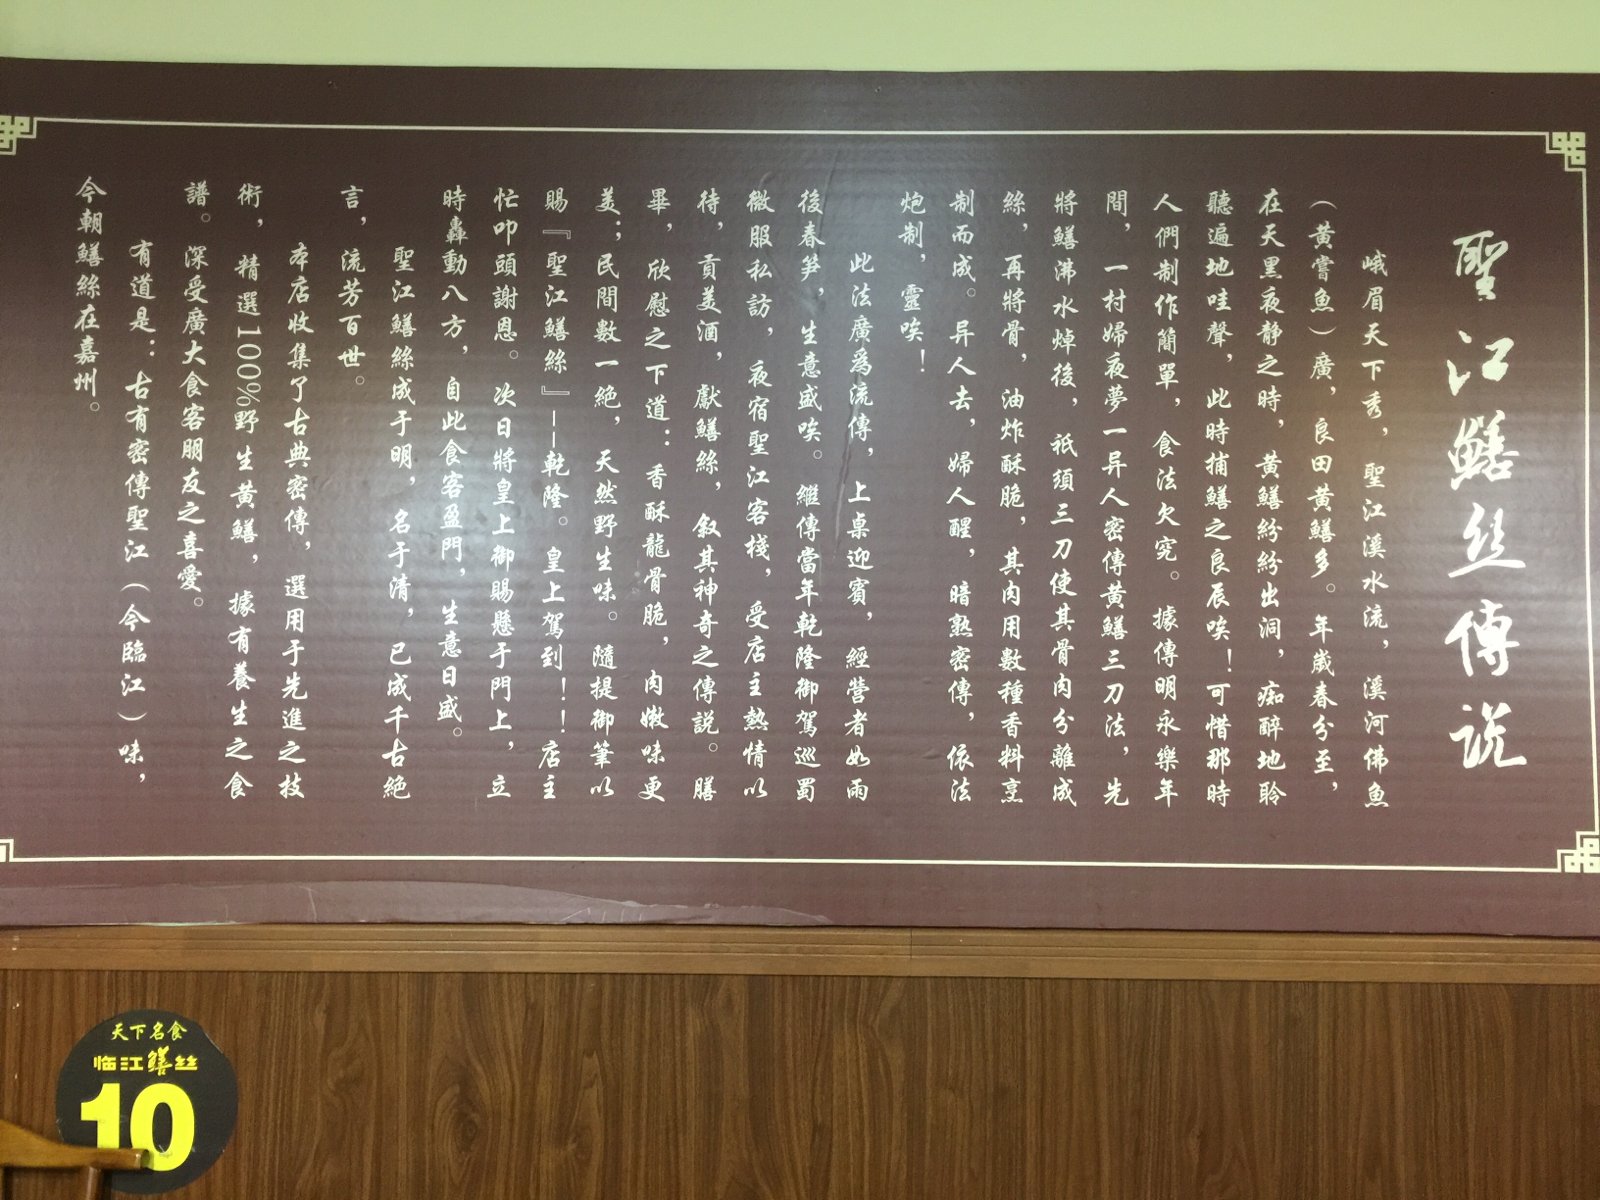 聖江鱔丝傳説
峨眉天下秀，聖江溪水流，溪河佛魚
（黄嘗魚）廣，良田黄鱔多。年歲春分至，
在天黑夜静之時，黄鱔紛紛出洞，痴醉地聆
聽遍地哇聲，此時捕鱔之良辰唉！可惜那時
人們制作簡單，食法欠究。據傳明永樂年
間，一村婦夜夢一异人密傳黄鱔三刀法，先
將鱔沸水焯後，祇須三刀使其骨肉分離成
絲，再將骨，油炸酥脆，其肉用數種香料烹
制而成。异人去，婦人醒，暗熟密傳，依法
炮制，靈唉！
此法廣爲流傳，上桌迎賓，經營者如雨
後春笋，生意盛唉。繼傳當年乾隆御駕巡蜀
微服私訪，夜宿聖江客棧，受店主熱情以
待，貢美酒，獻鱔絲，叙其神奇之傳説。膳
畢，欣慰之下道：香酥龍骨脆，肉嫩味更
美；民間數一絶，天然野生味。隨提御筆以
賜『聖江鱔絲』——乾隆。皇上駕到！！店主
忙叩頭謝恩。次日將皇上御賜懸于門上，立
時轟動八方，自此食客盈門，生意日盛。
聖江鱔絲成于明，名于清，已成千古絶
言，流芳百世。
本店收集了古典密傳，選用于先進之技
術，精選100%野生黄鱔，據有養生之食
譜。深受廣大食客朋友之喜愛。
有道是：古有密傳聖江（今臨江）味，
今朝鱔絲在嘉州。
天下名食
临江鱔丝
10